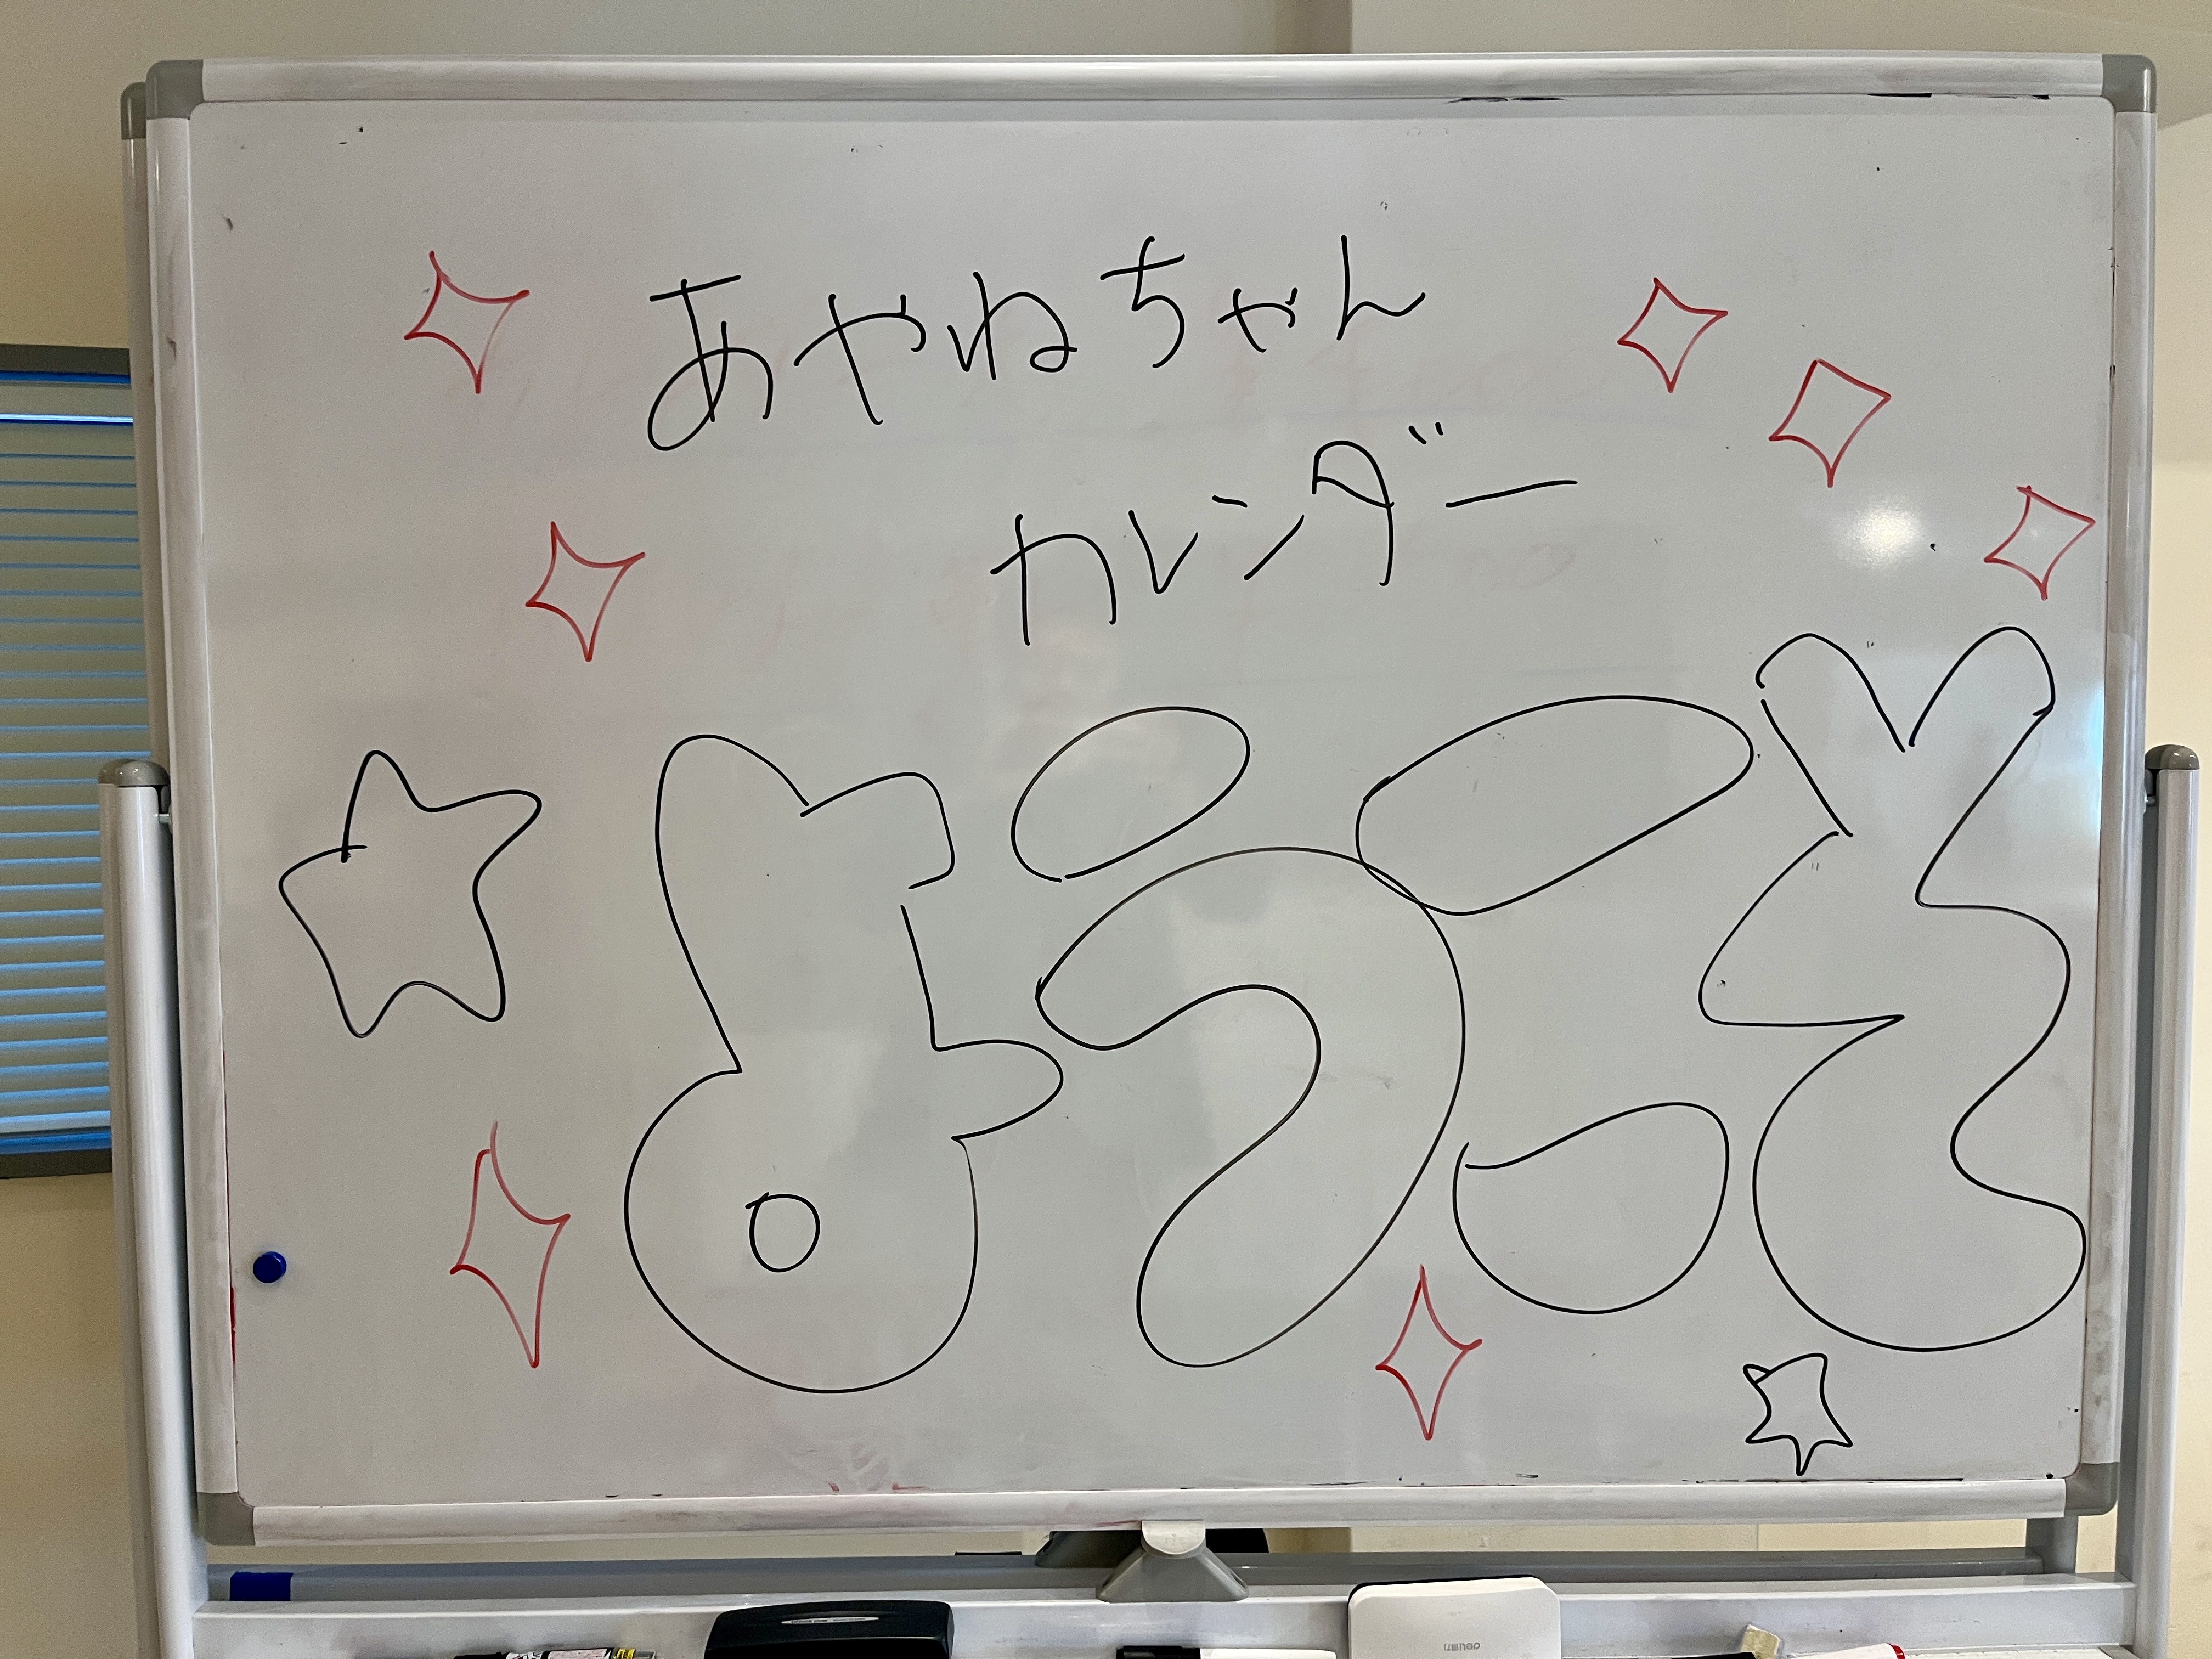 あやねちゃん
カレンダー
ようこそ
deli